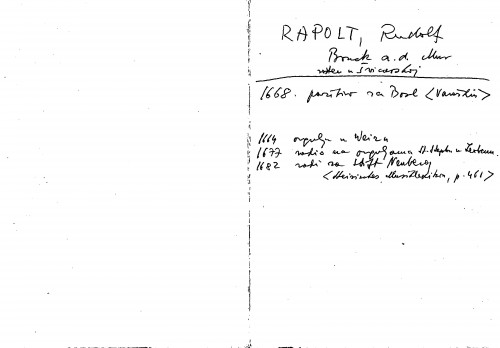 RAPOLT, Rudolf
Bruck a.d. Mur
rođen u Švicarskoj
1668. pozitiv za Bosl <Vanišlis>
1664 orgulje u Weizu
1677 radio na orguljama St. Steph. u Leoben
1682 radi za Stift Neuberg
<Steirisches Musiklexikon, p. 461>